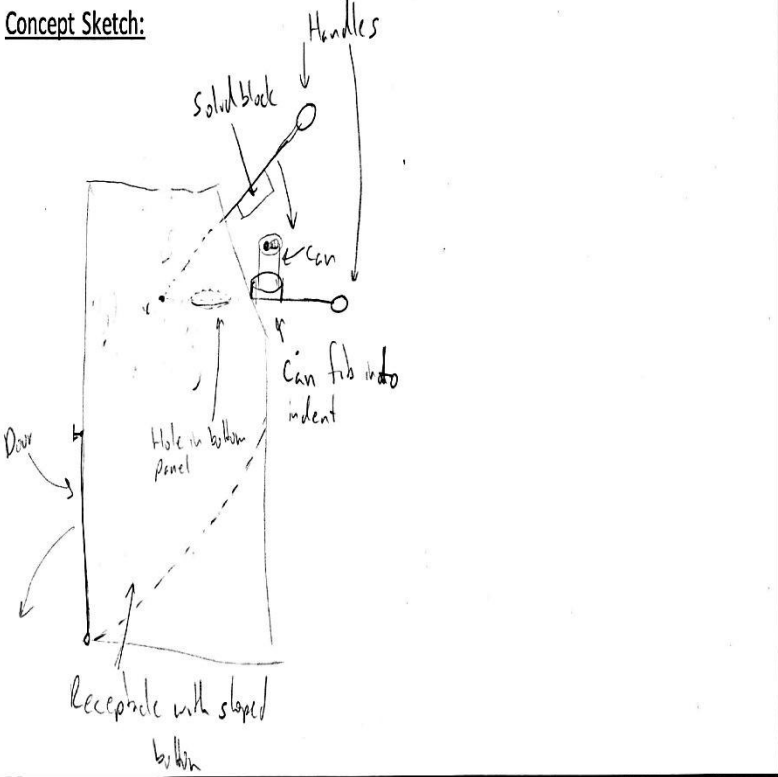 Concept Sketch:
Handles
Solid block
Can
Can fits into
indent
Door
Hole in bottom
panel
Receptacle with sloped
bottom